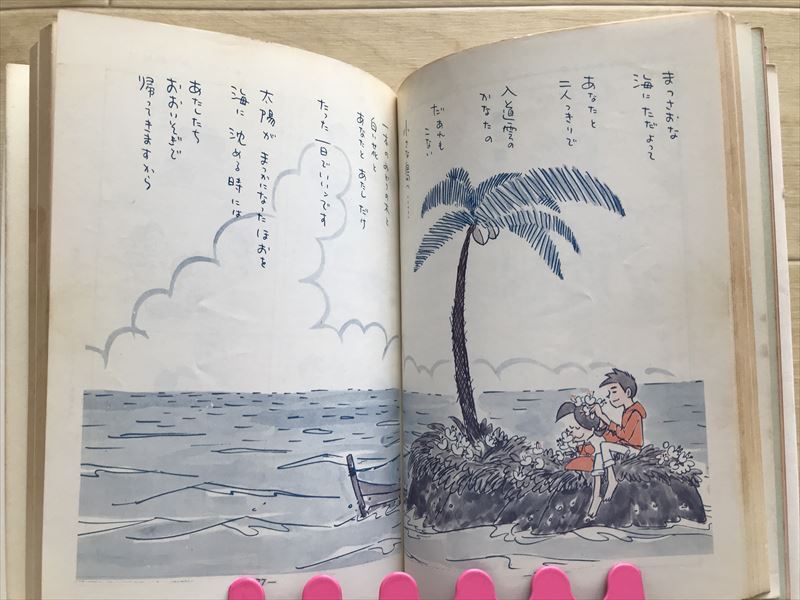 まっさおな
海にただよって
あなたと
二人っきりで
入道雲の
かなたの
だあれも
こない
小さな島へ……
木と
白い花と
あなたと あたしだけ
たった一日でいいンです
太陽が まっかになったほおを
海に 沈める時には
あたしたち
おおいそぎで
帰ってきますから